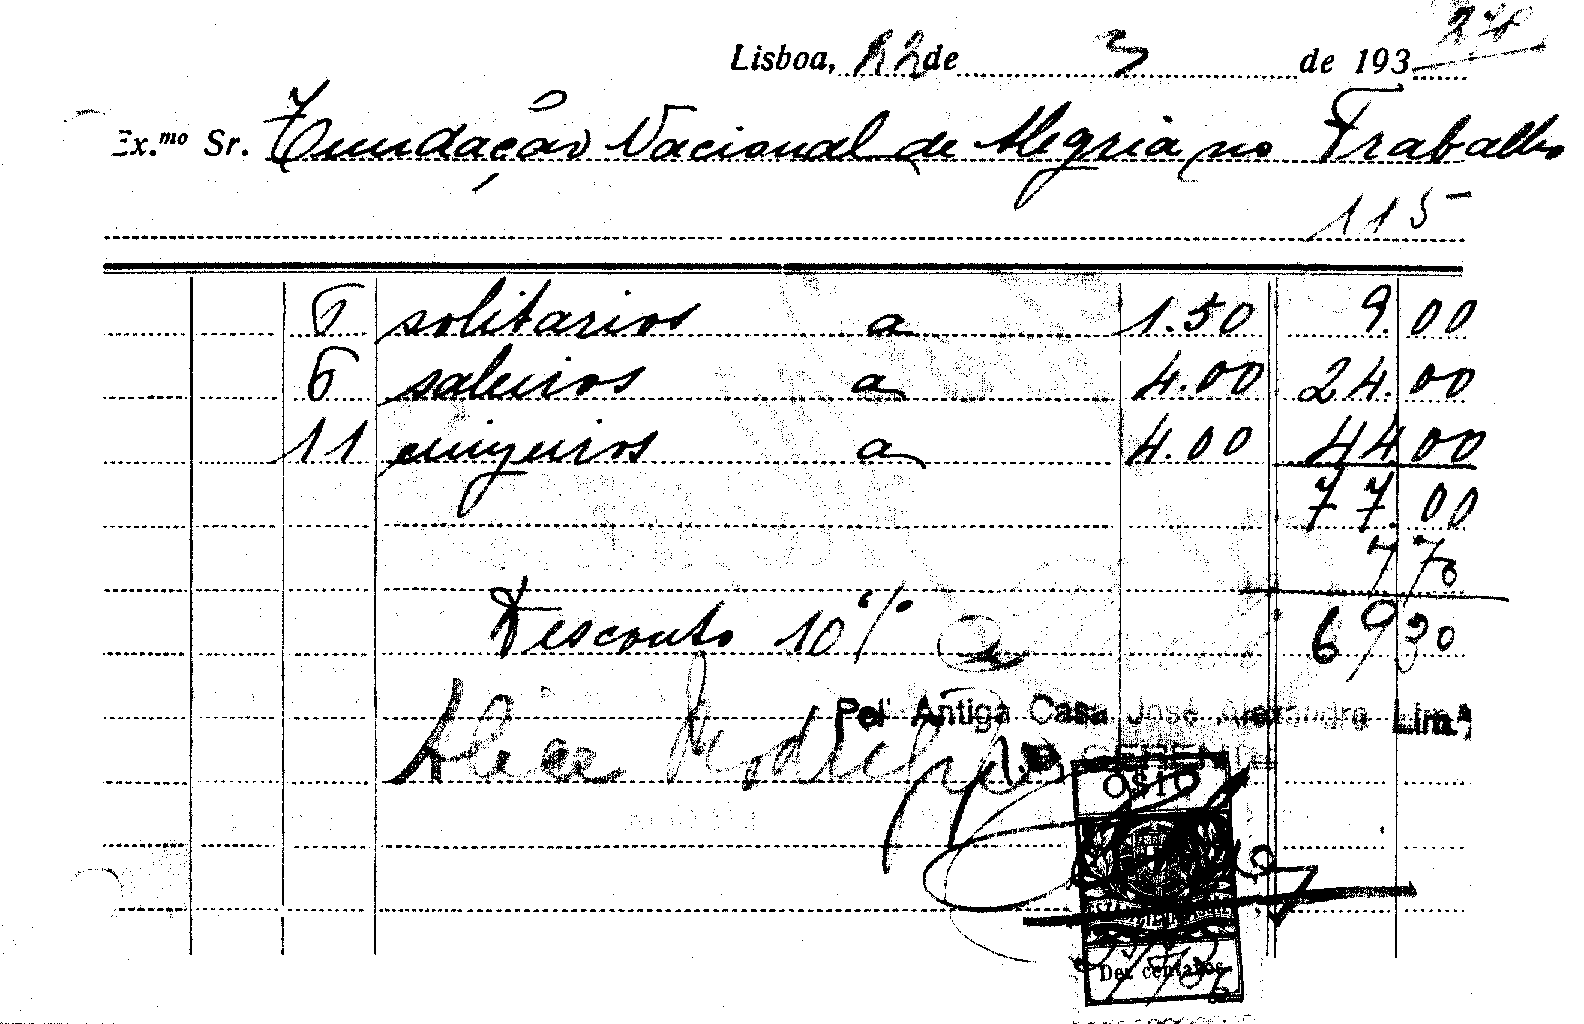 Lisboa, 22 de 3 de 193
Ex.mo Sr. Fundação Nacional de Alegria no Trabalho
115
6 solitarios a 1.50 9.00
6 saleiros a 4.00 24.00
11 cinzeiros a 4.00 44.00
77.00
7 70
Desconto 10% 69 30
Pel' Antiga Casa José Alexandre Lim.ª
Alice Rodrigues
O GERENTE
Dez centavos